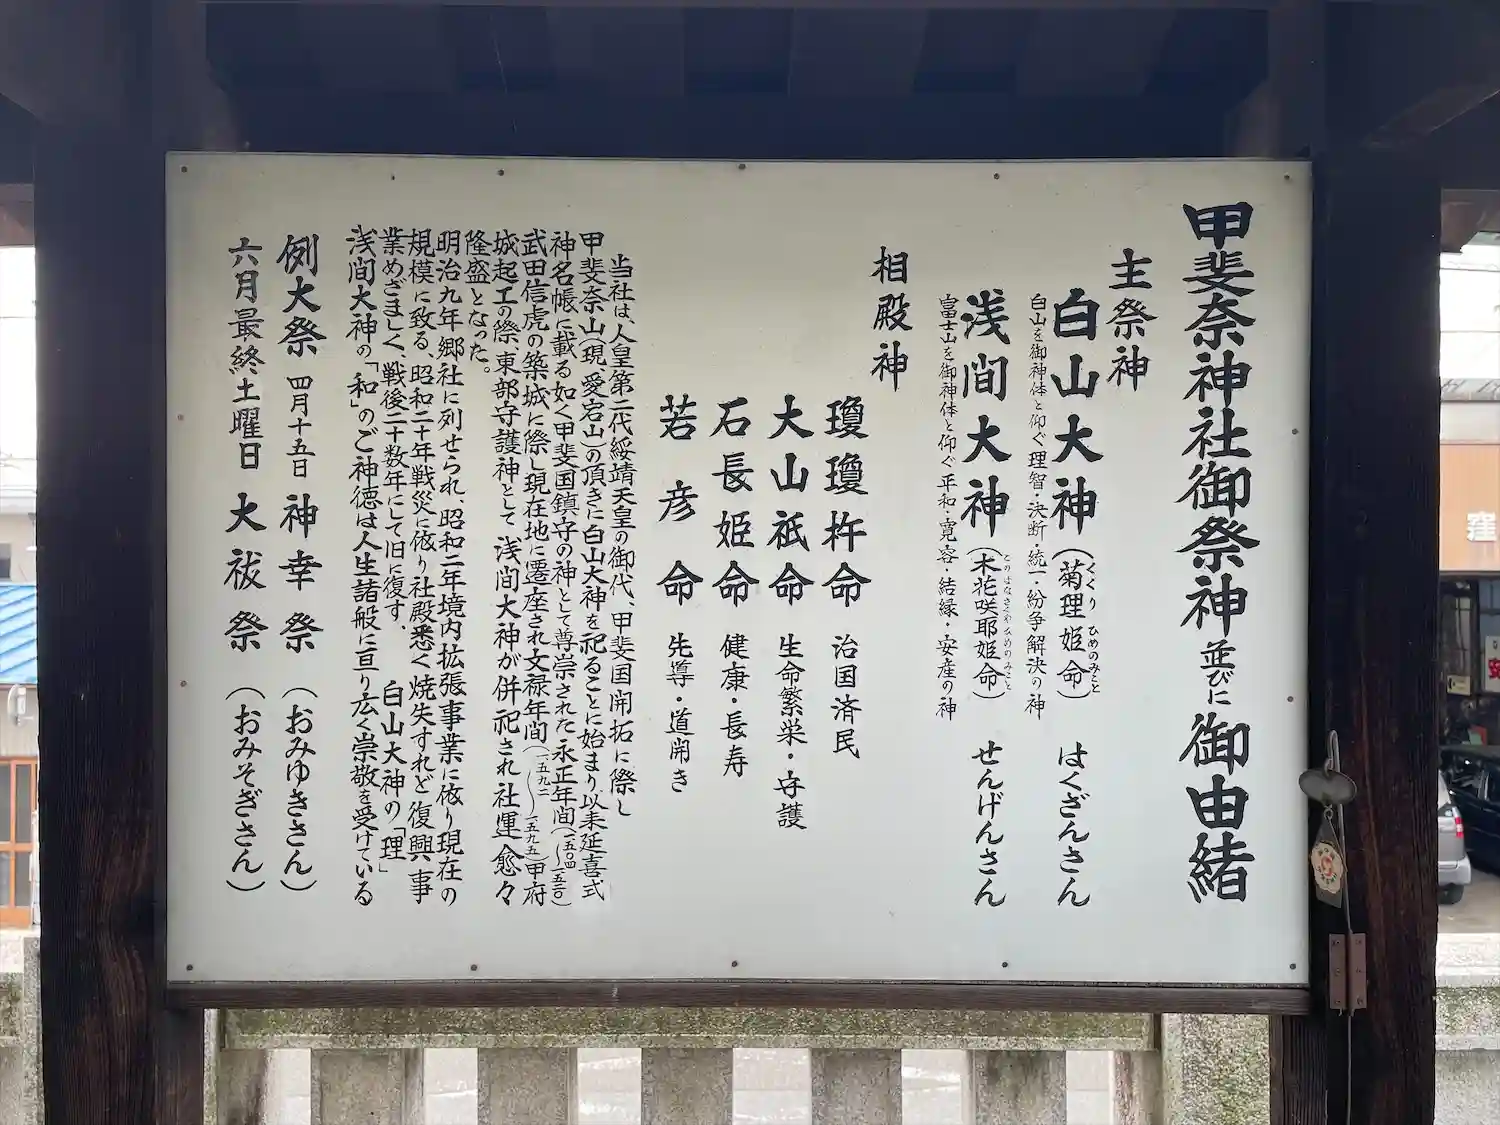 甲斐奈神社御祭神並びに御由緒
主祭神
白山大神(菊理姫命) はくざんさん
くくりひめのみこと
白山を御神体と仰ぐ理智・決断・統一・紛争解決の神
浅間大神(木花咲耶姫命) せんげんさん
このはなさくやひめのみこと
富士山を御神体と仰ぐ平和・寛容・結縁・安産の神
相殿神
瓊瓊杵命 治国済民
大山祇命 生命繁栄・守護
石長姫命 健康・長寿
若彦命 先導・道開き
当社は、人皇第二代綏靖天皇の御代、甲斐国開拓に際し
甲斐奈山(現愛宕山)の頂きに白山大神を祀ることに始まり以来延喜式
神名帳に載る如く甲斐国鎮守の神として尊崇された永正年間(一五〇四〜一五二〇)
武田信虎の築城に際し現在地に遷座され文禄年間(一五九二〜一五九五)甲府
城起工の際、東部守護神として浅間大神が併祀され社運愈々
隆盛となった。
明治九年郷社に列せられ、昭和二年境内拡張事業に依り現在の
規模に致る、昭和二十年戦災に依り社殿悉く焼失すれど復興事
業めざましく、戦後二十数年にして旧に復す. 白山大神の「理」
浅間大神の「和」のご神徳は人生諸般に亘り広く崇敬を受けている
例大祭 四月十五日 神幸祭 (おみゆきさん)
六月最終土曜日 大祓祭 (おみそぎさん)
窪